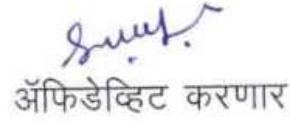 ॲफिडेव्हिट करणार